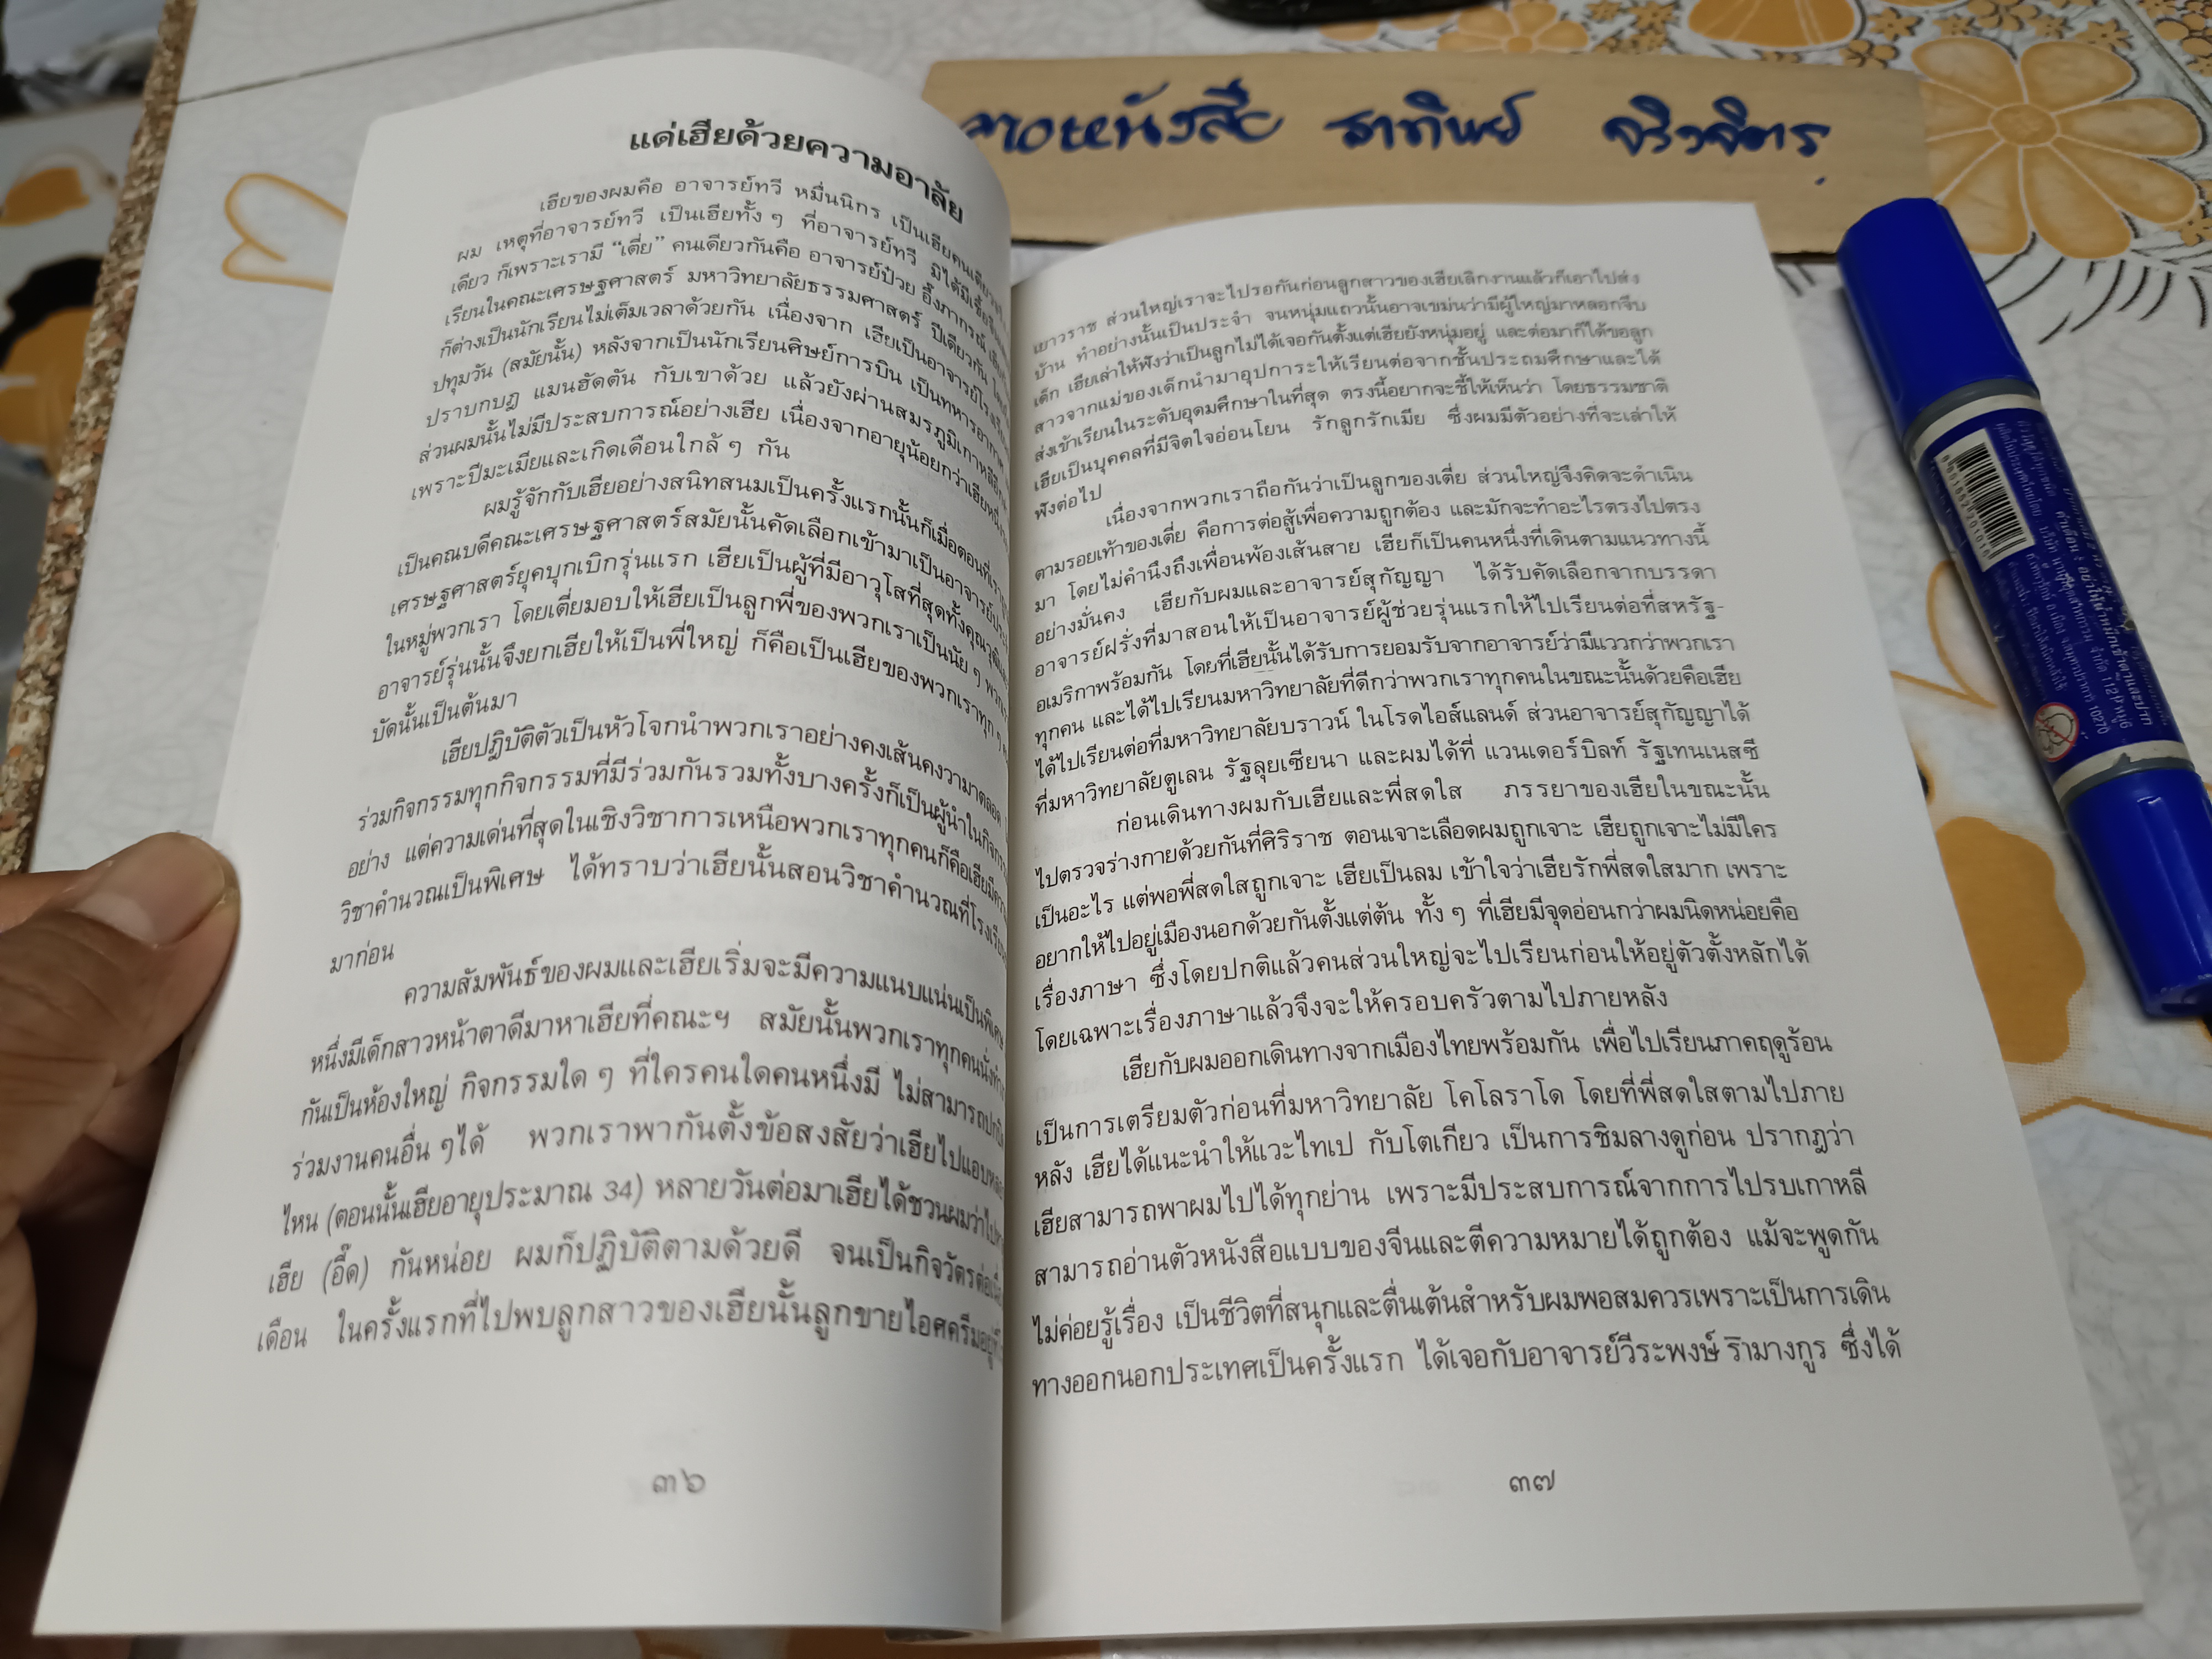 แด่เฮียด้วยความอาลัย
เฮียของผมคือ อาจารย์ทวี หมื่นนิกร เป็นเฮียคนเดียว
ผม เหตุที่อาจารย์ทวี เป็นเฮียทั้ง ๆ ที่อาจารย์ทวี มิได้มีเชื้อ
เดียว ก็เพราะเรามี “เตี่ย” คนเดียวกันคือ อาจารย์ป๋วย อึ๊งภากรณ์
เรียนในคณะเศรษฐศาสตร์ มหาวิทยาลัยธรรมศาสตร์ ปีเดียวกัน
ก็ต่างเป็นนักเรียนไม่เต็มเวลาด้วยกัน เนื่องจาก เฮียเป็นอาจารย์
ปทุมวัน (สมัยนั้น) หลังจากเป็นนักเรียนศิษย์การบิน เป็นทหารอากาศ
ปราบกบฎ แมนฮัดตัน กับเขาด้วย แล้วยังผ่านสมรภูมิเกาหลี
ส่วนผมนั้นไม่มีประสบการณ์อย่างเฮีย เนื่องจากอายุน้อยกว่าเฮีย
เพราะปีมะเมียและเกิดเดือนใกล้ ๆ กัน
ผมรู้จักกับเฮียอย่างสนิทสนมเป็นครั้งแรกนั้นก็เมื่อตอนที่
เป็นคณบดีคณะเศรษฐศาสตร์สมัยนั้นคัดเลือกเข้ามาเป็นอาจารย์
เศรษฐศาสตร์ยุคบุกเบิกรุ่นแรก เฮียเป็นผู้ที่มีอาวุโสที่สุดทั้งคุณวุฒิ
ในหมู่พวกเรา โดยเตี่ยมอบให้เฮียเป็นลูกพี่ของพวกเราเป็นนัย ๆ
อาจารย์รุ่นนั้นจึงยกเฮียให้เป็นพี่ใหญ่ ก็คือเป็นเฮียของพวกเราทุก ๆ
บัดนั้นเป็นต้นมา
เฮียปฎิบัติตัวเป็นหัวโจกนำพวกเราอย่างคงเส้นคงวามาตลอด
ร่วมกิจกรรมทุกกิจกรรมที่มีร่วมกันรวมทั้งบางครั้งก็เป็นผู้นำในกิจกรรม
อย่าง แต่ความเด่นที่สุดในเชิงวิชาการเหนือพวกเราทุกคนก็คือเฮีย
วิชาคำนวณเป็นพิเศษ ได้ทราบว่าเฮียนั้นสอนวิชาคำนวณที่โรงเรียน
มาก่อน
ความสัมพันธ์ของผมและเฮียเริ่มจะมีความแนบแน่นเป็นพิเศษ
หนึ่งมีเด็กสาวหน้าตาดีมาหาเฮียที่คณะฯ สมัยนั้นพวกเราทุกคนนั่ง
กันเป็นห้องใหญ่ กิจกรรมใด ๆ ที่ใครคนใดคนหนึ่งมี ไม่สามารถ
ร่วมงานคนอื่น ๆได้ พวกเราพากันตั้งข้อสงสัยว่าเฮียไปแอบ
ไหน (ตอนนั้นเฮียอายุประมาณ 34) หลายวันต่อมาเฮียได้ชวนผมว่า
เฮีย (อี๊ด) กันหน่อย ผมก็ปฏิบัติตามด้วยดี จนเป็นกิจวัตร
เดือน ในครั้งแรกที่ไปพบลูกสาวของเฮียนั้นลูกขายไอศครีม
๓๖
ภาพหนังสือ
เยาวราช ส่วนใหญ่เราจะไปรอกันก่อนลูกสาวของเฮียเลิกงานแล้วก็เอาไปส่ง
บ้าน ทำอย่างนั้นเป็นประจำ จนหนุ่มแถวนั้นอาจเขม่นว่ามีผู้ใหญ่มาหลอกจีบ
เด็ก เฮียเล่าให้ฟังว่าเป็นลูกไม่ได้เจอกันตั้งแต่เฮียยังหนุ่มอยู่ และต่อมาก็ได้ขอลูก
สาวจากแม่ของเด็กนำมาอุปการะให้เรียนต่อจากชั้นประถมศึกษาและได้
ส่งเข้าเรียนในระดับอุดมศึกษาในที่สุด ตรงนี้อยากจะชี้ให้เห็นว่า โดยธรรมชาติ
เฮียเป็นบุคคลที่มีจิตใจอ่อนโยน รักลูกรักเมีย ซึ่งผมมีตัวอย่างที่จะเล่าให้
ฟังต่อไป
เนื่องจากพวกเราถือกันว่าเป็นลูกของเตี่ย ส่วนใหญ่จึงคิดจะดำเนิน
ตามรอยเท้าของเตี่ย คือการต่อสู้เพื่อความถูกต้อง และมักจะทำอะไรตรงไปตรง
มา โดยไม่คำนึงถึงเพื่อนพ้องเส้นสาย เฮียก็เป็นคนหนึ่งที่เดินตามแนวทางนี้
อย่างมั่นคง เฮียกับผมและอาจารย์สุกัญญา ได้รับคัดเลือกจากบรรดา
อาจารย์ฝรั่งที่มาสอนให้เป็นอาจารย์ผู้ช่วยรุ่นแรกให้ไปเรียนต่อที่สหรัฐ-
อเมริกาพร้อมกัน โดยที่เฮียนั้นได้รับการยอมรับจากอาจารย์ว่ามีแววกว่าพวกเรา
ทุกคน และได้ไปเรียนมหาวิทยาลัยที่ดีกว่าพวกเราทุกคนในขณะนั้นด้วยคือเฮีย
ได้ไปเรียนต่อที่มหาวิทยาลัยบราวน์ ในโรดไอส์แลนด์ ส่วนอาจารย์สุกัญญาได้
ที่มหาวิทยาลัยตูเลน รัฐลุยเซียนา และผมได้ที่ แวนเดอร์บิลท์ รัฐเทนเนสซี
ก่อนเดินทางผมกับเฮียและพี่สดใส ภรรยาของเฮียในขณะนั้น
ไปตรวจร่างกายด้วยกันที่ศิริราช ตอนเจาะเลือดผมถูกเจาะ เฮียถูกเจาะไม่มีใคร
เป็นอะไร แต่พอพี่สดใสถูกเจาะ เฮียเป็นลม เข้าใจว่าเฮียรักพี่สดใสมาก เพราะ
อยากให้ไปอยู่เมืองนอกด้วยกันตั้งแต่ต้น ทั้ง ๆ ที่เฮียมีจุดอ่อนกว่าผมนิดหน่อยคือ
เรื่องภาษา ซึ่งโดยปกติแล้วคนส่วนใหญ่จะไปเรียนก่อนให้อยู่ตัวตั้งหลักได้
โดยเฉพาะเรื่องภาษาแล้วจึงจะให้ครอบครัวตามไปภายหลัง
เฮียกับผมออกเดินทางจากเมืองไทยพร้อมกัน เพื่อไปเรียนภาคฤดูร้อน
เป็นการเตรียมตัวก่อนที่มหาวิทยาลัย โคโลราโด โดยที่พี่สดใสตามไปภาย
หลัง เฮียได้แนะนำให้แวะไทเป กับโตเกียว เป็นการชิมลางดูก่อน ปรากฎว่า
เฮียสามารถพาผมไปได้ทุกย่าน เพราะมีประสบการณ์จากการไปรบเกาหลี
สามารถอ่านตัวหนังสือแบบของจีนและตีความหมายได้ถูกต้อง แม้จะพูดกัน
ไม่ค่อยรู้เรื่อง เป็นชีวิตที่สนุกและตื่นเต้นสำหรับผมพอสมควรเพราะเป็นการเดิน
ทางออกนอกประเทศเป็นครั้งแรก ได้เจอกับอาจารย์วีระพงษ์ รามางกูร ซึ่งได้
๓๗